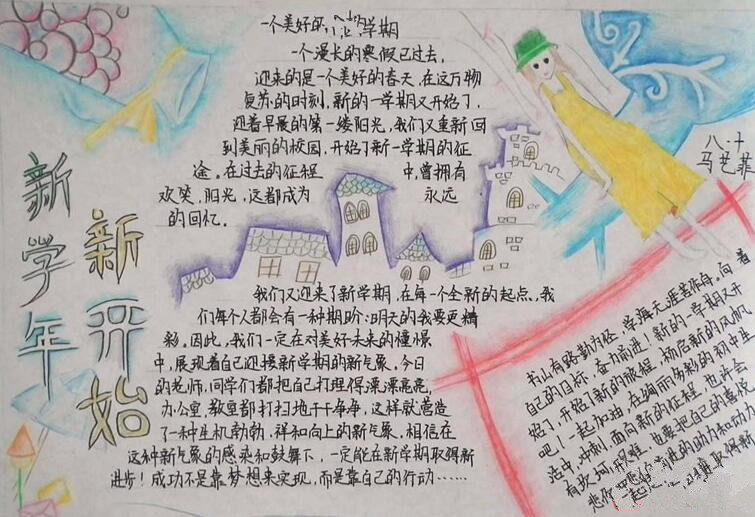 新学年
新开始
一个美好的新学期
一个漫长的寒假已过去,
迎来的是一个美好的春天,在这万物
复苏的时刻,新的一学期又开始了,
迎着早晨的第一缕阳光,我们又重新回
到美丽的校园,开始了新一学期的征
途。在过去的征程中,曾拥有
欢笑,阳光,这都成为永远
的回忆。
八.十
马艺菲
我们又迎来了新学期,在每一个全新的起点,我
们每个人都会有一种期盼:明天的我要更精
彩。因此,我们一定在对美好未来的憧憬
中,展现着自己迎接新学期的新气象,今日
的老师,同学们都把自己打理得漂漂亮亮,
办公室,教室都打扫地干干净净,这样就营造
了一种生机勃勃,祥和向上的新气象,相信在
这种新气象的感染和鼓舞下,一定能在新学期取得新
进步!成功不是靠梦想来实现,而是靠自己的行动……
书山有路勤为径,学海无涯苦作舟,向着
自己的目标,奋力前进!新的一学期又开
始了,开始了新的旅程,扬启新的风帆
吧!一起加油,在绚丽多彩的初中生
活中,冲刺,面向新的征程,也许会
有坎坷,艰难,也要把自己的喜悦
悲伤 进的动力和动力
一起 取得新